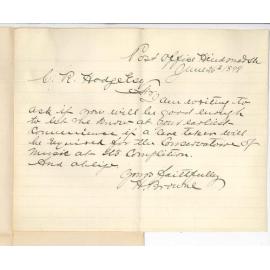 Post Office Hindmarsh
June 26th 1899
C. R. Hodge Esq
Sir,
I am writing to
ask if you will be good enough
to let me know at your earliest
convenience if a Care taker will
be required for the Conservatorium of
music at its Completion.
And oblige
Yours faithfully
H. Browne